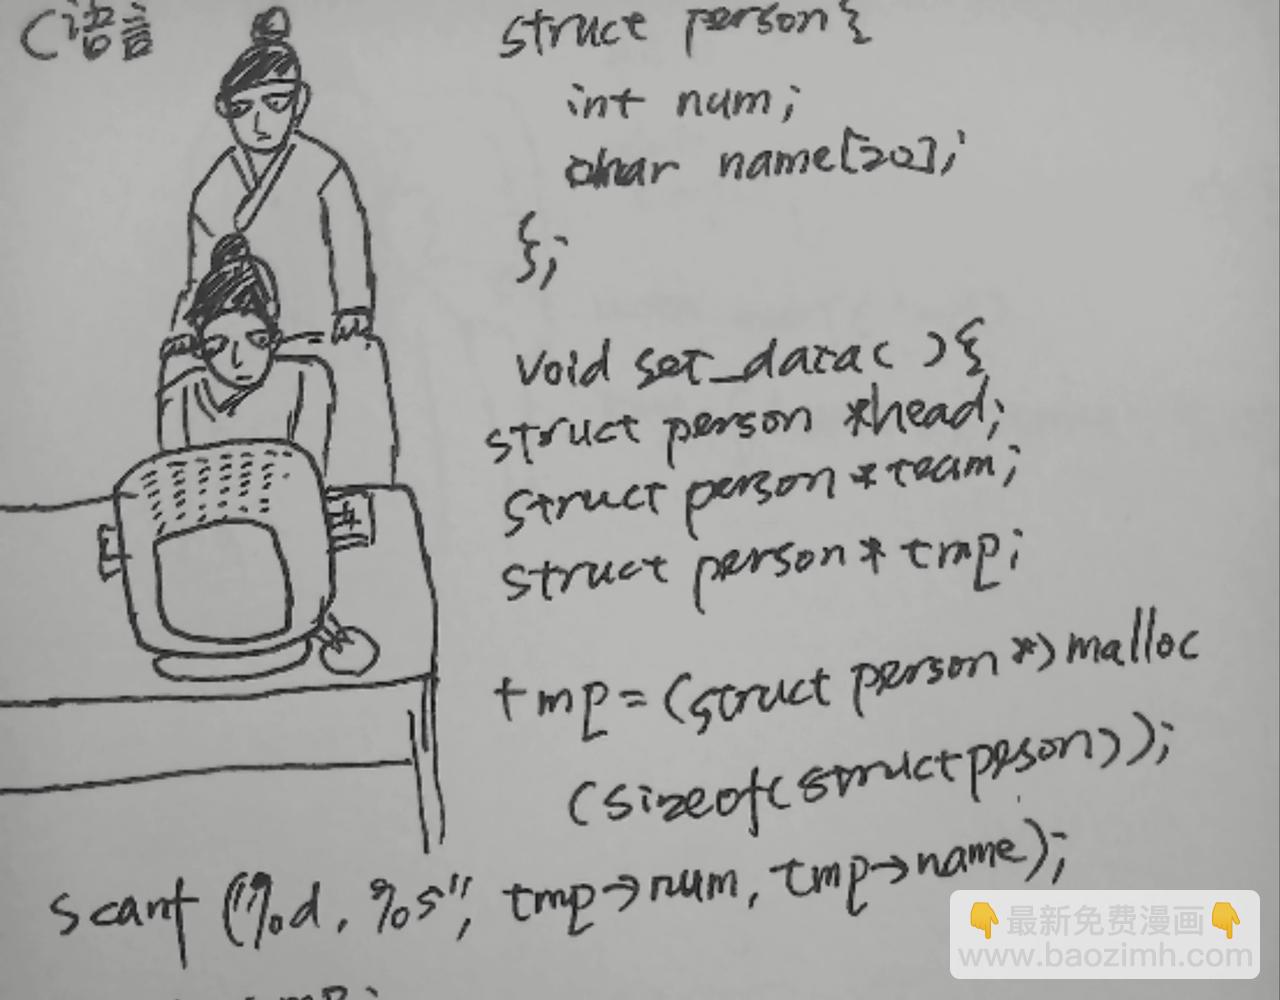 C语言
struct person{
int num;
char name[20];
};
void set_data( ){
struct person *head;
struct person *team;
struct person * tmp;
tmp=(struct person *)malloc
(sizeof(struct person));
scanf ("%d, %s", tmp->num, tmp->name);
最新免费漫画
www.baozimh.com